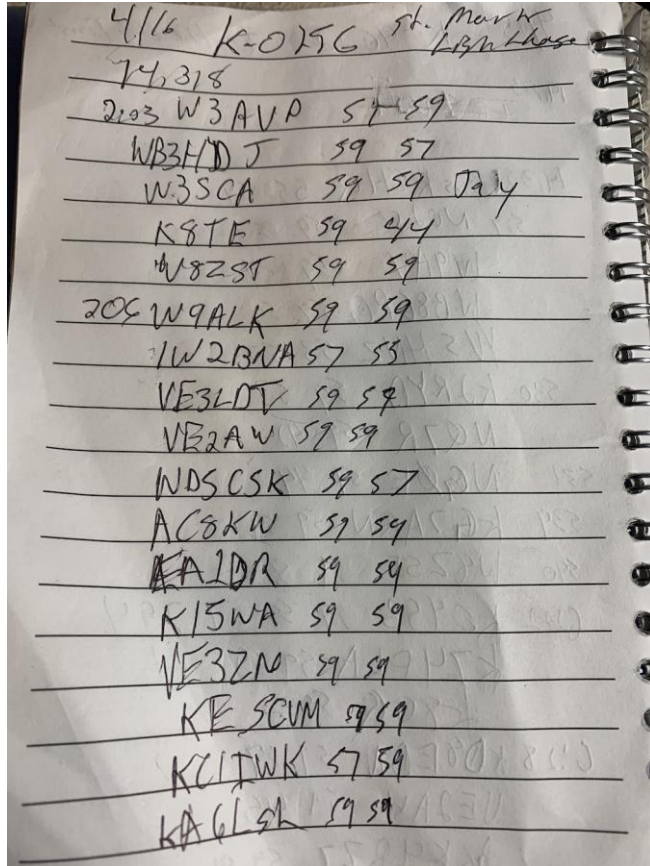 4/16 K-0256 St. Mark Lighthouse
14,318
2:03 W3AVP 57 59
WB3HDJ 59 57
W3SCA 59 59 Jay
K8TE 59 44
W8ZST 59 59
205 W9ALK 59 59
IW2BNA 57 55
VE3LDT 59 59
VE2AW 59 59
WD5CSK 59 57
AC8KW 59 59
EA1DR 59 59
KI5WA 59 59
VE3ZN 59 59
KE5CVM 59 59
KC1TWK 57 59
KA6LSL 59 59